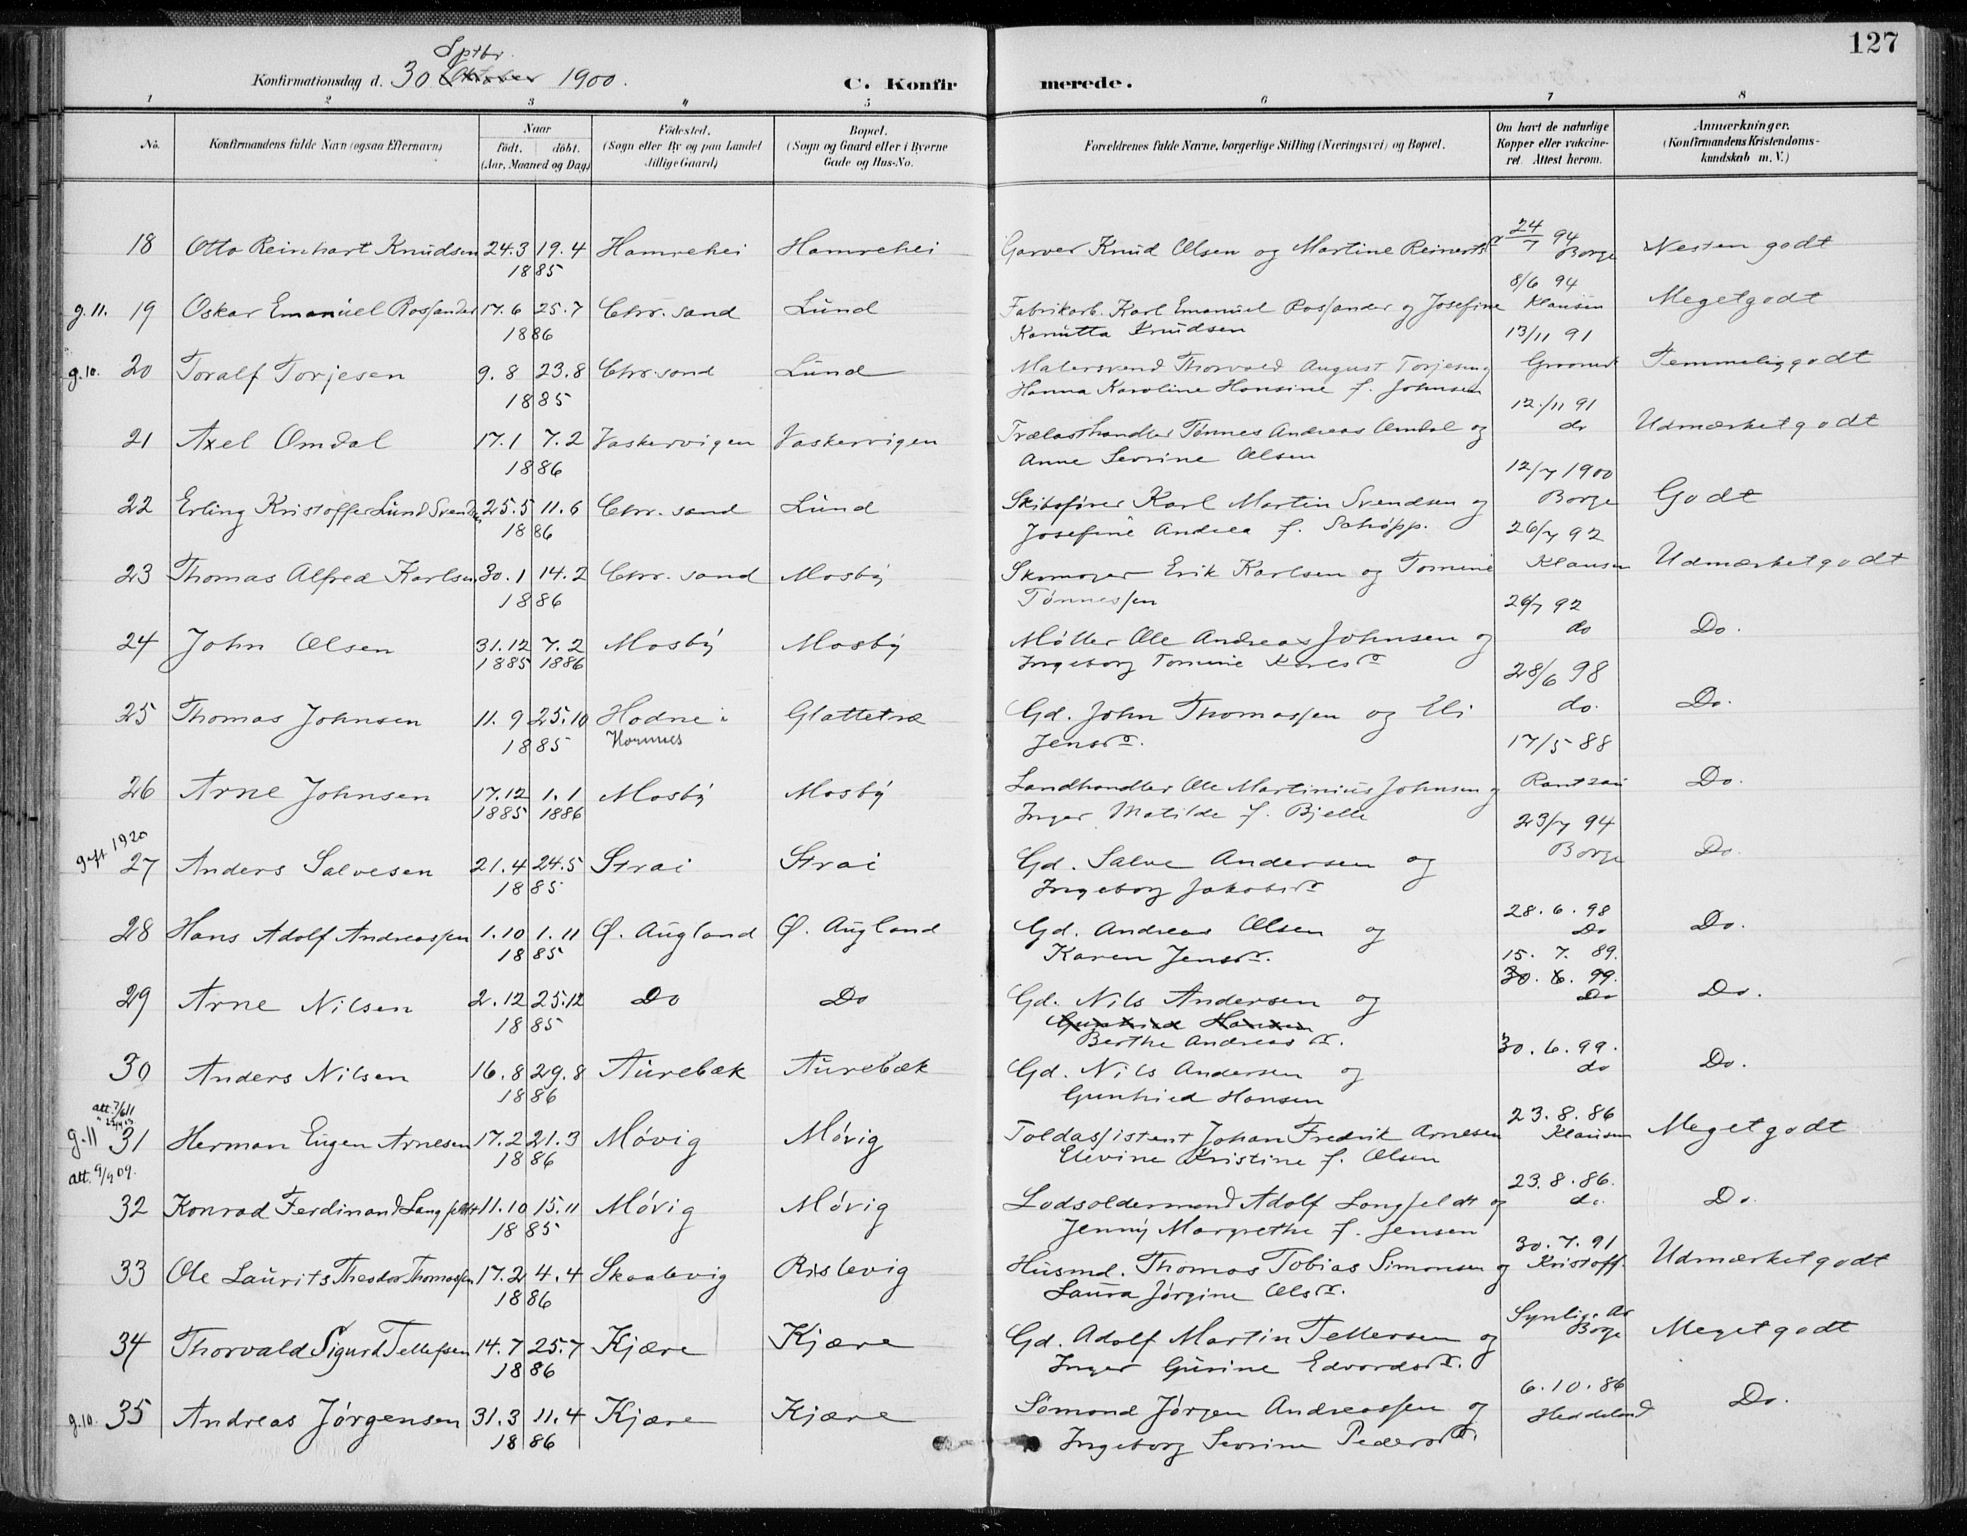 127
Sptbr.
Konfirmationsdag d. 30 Oktober 1900.
C. Konfirmerede.
1 2 3 4 5 6 7 8
No. Konfirmandens fulde Navn (ogsaa Efternavn) Naar født. døbt. (Aar, Maaned og Dag) Fødested. (Sogn eller By og paa Landet tillige Gaard) Bopæl. (Sogn og Gaard eller i Byerne Gade og Hus-No. Forældrenes fulde Navne, borgerlige Stilling (Næringsvei) og Bopæl. Om havt de naturlige Kopper eller vakcineret. Attest herom. Anmærkninger. (Konfirmandens Kristendomskundskab m. V.)
18 Otto Reinhart Knudsen 24.3 19.4 Hamrehei Hamrehei Garver Knud Olsen og Martine Reinertsdr 24/7 94 Borge Nesten godt
1885
g. 11. 19 Oskar Emanuel Rossander 17.6 25.7 Chr. sand Lund Fabrikarb. Karl Emanuel Rossander og Josefine 8/6 94 Klausen Meget godt
1886 Knudsen
g. 10. 20 Toralf Torjesen 9.8 23.8 Chr. sand Lund Malersvend Thorvald August Torjesen og 13/11 91 Temmelig godt
1885 Hanna Karoline Hansine f. Johnsen
21 Axel Omdal 17.1 7.2 Vaskervigen Vaskervigen Trælasthandler Tønnes Andreas Omdal og 12/11 91 do Udmærket godt
1886 Anne Severine Olsen
22 Erling Kristoffer Lund Svendsen 25.5 11.6 Chr. sand Lund Skibsfører Karl Martin Svendsen og 12/7 1900 Borge Godt
1886 Josefine Andrea f. Schøpp.
23 Thomas Alfred Karlsen 30.1 14.2 Chr. sand Mosby Skomager Erik Karlsen og Tomine 26/7 92 Klausen Udmærket godt
1886 Tønnessen
24 John Olsen 31.12 7.2 Mosby Mosby Møller Ole Andreas Johnsen og 26/7 92 do Do.
1885 1886 Ingeborg Tomine Karlsdr
25 Thomas Johnsen 11.9 25.10 Hodne i Glattetræ Gd. John Thomassen og Eli 28/6 98 do. Do.
1885 Hornnes Jensdr.
26 Arne Johnsen 17.12 1.1 Mosby Mosby Landhandler Ole Martinius Johnsen og 17/5 88 Rantzau Do.
1885 1886 Inger Matilde f. Bjelle
gift 1920 27 Anders Salvesen 21.4 24.5 Strai Strai Gd. Salve Andersen og 23/7 94 Borge Do.
1885 Ingeborg Jakobsdr
28 Hans Adolf Andreassen 1.10 1.11 Ø. Augland Ø. Augland Gd. Andreas Olsen og 28.6.98 Do Do.
1885 Karen Jensdr.
29 Arne Nilsen 2.12 25.12 Do Do Gd. Nils Andersen og 15. 7. 89. 30. 6. 99. Do Do.
1885 Gunhild Hansen
Berthe Andreasdr.
30 Anders Nilsen 16.8 29.8 Aurebæk Aurebæk Gd. Nils Andersen og 30.6.99. do Do.
1886 Gunhild Hansen
att. 7/6 11
g. 11 31 Herman Eugen Arnesen 17.2 21.3 Møvig Møvig Toldassistent Johan Fredrik Arnesen 23.8.86 Klausen Meget godt
1886 Elevine Kristine f. Olsen
att. 9/9 09.
32 Konrad Ferdinand Langfeldt 11.10 15.11 Møvig Møvig Lodsoldermand Adolf Langfeldt og 23.8.86. do. Do
1885 Jenny Margrethe f. Jensen
33 Ole Laurits Theodor Thomassen 17.2 4.4 Skaalevig Rislevig Husmd. Thomas Tobias Simonsen og 30.7.91 Kristoff. Udmærket godt
1886 Laura Jørgine Olsdr.
34 Thorvald Sigurd Tellefsen 14.7 25.7 Kjære Kjære Gd. Adolf Martin Tellefsen og Synlig. Ar Borge Meget godt
1886 Inger Gurine Edvardsdr.
g. 10. 35 Andreas Jørgensen 31.3 11.4 Kjære Kjære Sømand Jørgen Andreassen og 6.10.86 Heddeland Do.
1886 Ingeborg Severine Pedersdr.